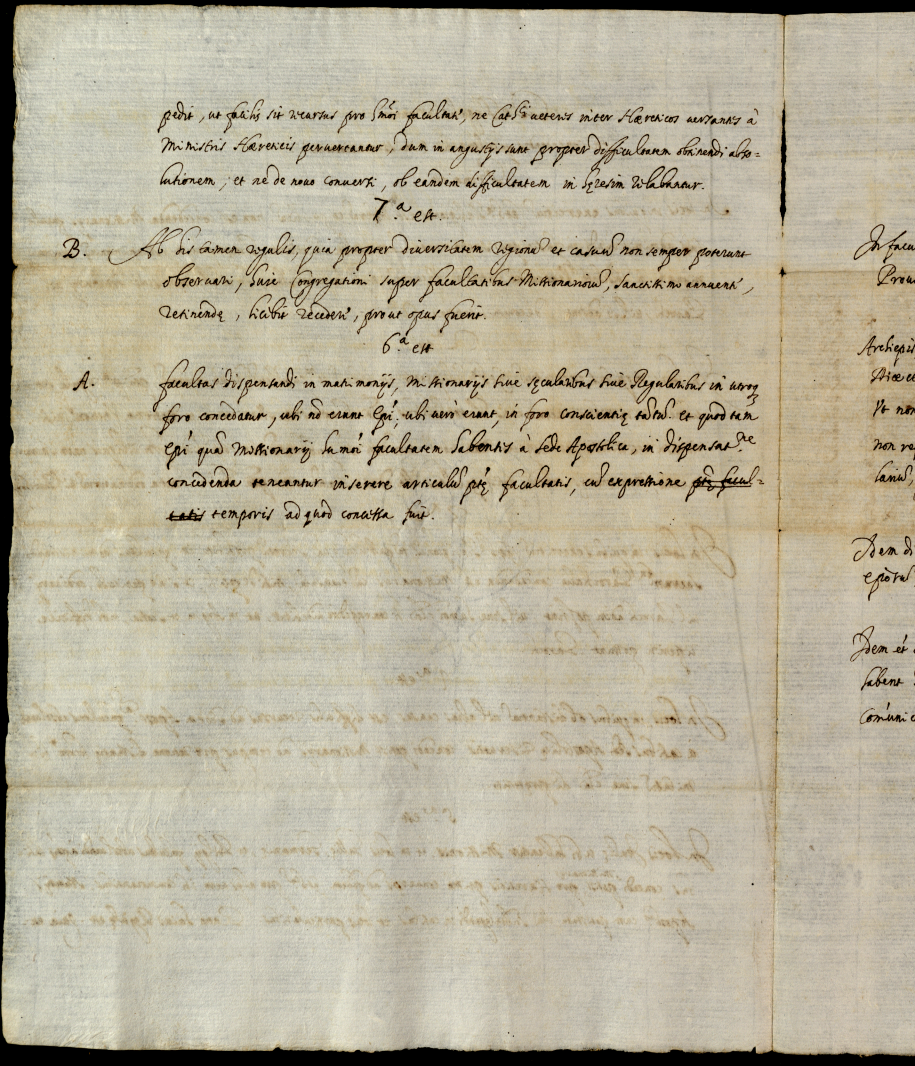 pedit, ut facilis sit recursus pro hmõi facultate, ne Cathci veteres inter Hæreticos versantes à
Ministris Hæreticis pervertantur, dum in angustijs sunt propter difficultatem obtinendi abso-
lutionem; et ne de novo conversi, ob eandem difficultatem in hęresim relabantur.
7.a est.
B. Ab his tamen regulis, quia propter diversitatem regionũ et casuũ non semper poterunt
observari, huic Congregationi super facultatibus Missionariorũ, Sanctissimo annuente,
retinendę, licebit recedere, prout opus fuerit.
6.a est
A. facultas dispensandi in matrimonijs, Missionarijs sive sęcularibus sive Regularibus in utroq3
foro concedatur, ubi nõ erunt Epi; ubi verò erunt, in foro conscientię tantũ. et quod tam
Epi quã Missionarij humõi facultatem habentes à Sede Apostolica, in dispensatne
concedenda teneantur inserere articulũ ptę facultatis, cũ expressione ptę facul-
tatis temporis ad quod concessa fuit.
In facu
Provi
Archiepis
Ut non
non re
lariũ,
Idem di
Idem et
habent
Comuni c